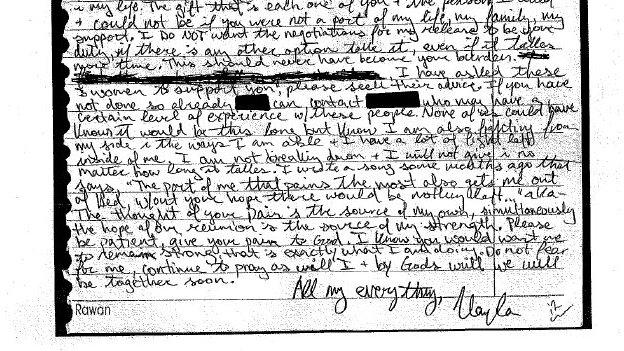 in my life. The gift that is each one of you + the person I
+ could not be if you were not a part of my life, my family, my
support. I DO NOT want the negotiations for my release to be your
duty, if there is any other option take it, even if it takes
more time. This should never have become your burden.
I have asked these
women to support you; please seek their advice. If you have
not done so already can contact who may have a
certain level of experience w/ these people. None of us could have
known it would be this long but know I am also fighting from
my side in the ways I am able + I have a lot of fight left
inside of me. I am not breaking down + I will not give in no
matter how long it takes. I wrote a song some months ago that
says, "The part of me that pains the most also gets me out
of bed, w/out your hope there would be nothing left..." aka-
The thought of your pain is the source of my own, simultaneously
the hope of our reunion is the source of my strength. Please
be patient, give your pain to God. I know you would want me
to remain strong. That is exactly what I am doing. Do not fear
for me, continue to pray as will I + by God's will we will
be together soon.
All my everything, Kayla
Rawan